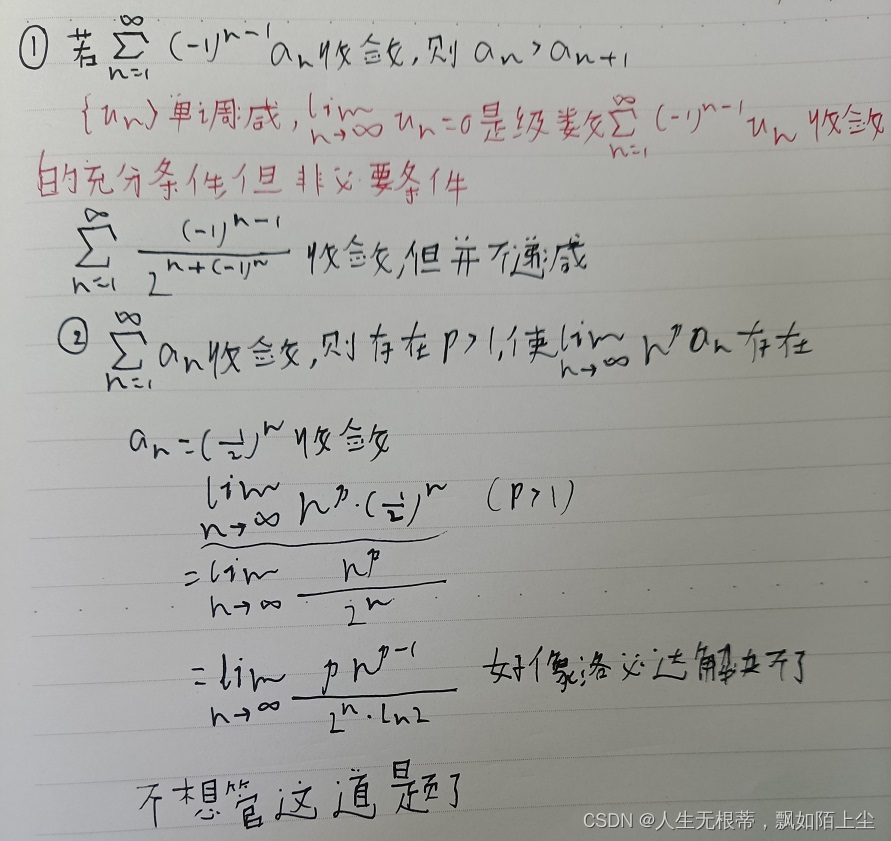 ① 若 $\sum_{n=1}^{\infty} (-1)^{n-1} a_n$ 收敛,则 $a_n > a_{n+1}$
$\{u_n\}$ 单调减, $\lim_{n\to\infty} u_n = 0$ 是级数 $\sum_{n=1}^{\infty} (-1)^{n-1} u_n$ 收敛
的充分条件但非必要条件
$\sum_{n=1}^{\infty} \frac{(-1)^{n-1}}{2^{n+(-1)^n}}$ 收敛,但并不递减
② $\sum_{n=1}^{\infty} a_n$ 收敛,则存在 $p>1$,使 $\lim_{n\to\infty} n^p a_n$ 存在
$a_n = (\frac{1}{2})^n$ 收敛
$\lim_{n\to\infty} n^p \cdot (\frac{1}{2})^n$ $(p>1)$
$= \lim_{n\to\infty} \frac{n^p}{2^n}$
$= \lim_{n\to\infty} \frac{p n^{p-1}}{2^n \cdot \ln 2}$ 好像洛必达解决不了
不想管这道题了
CSDN @人生无根蒂,飘如陌上尘